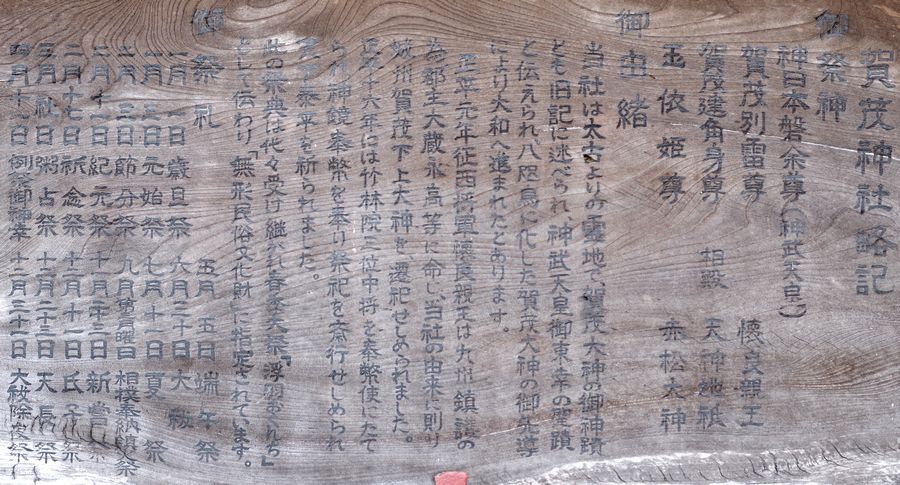 賀茂神社略記
御祭神
神日本磐余尊(神武天皇)
賀茂別雷尊 懐良親王
賀茂建角身尊 相殿 天神地祇
玉依姫尊 赤松大神
御由緒
当社は太古よりの霊地で、賀茂大神の御神蹟
とも旧記に述べられ、神武天皇御東幸の聖蹟
と伝えられ、八咫烏に化した賀茂大神の御先導
により大和へ進まれたとあります。
正平元年征西将軍懐良親王は九州鎮護の
為郡主大蔵永高等に命じ、当社の由来に則り
城州賀茂下上大神を、還祀せしめられました。
正平十六年には竹林院三位中将を奉幣使にたて
られ神鏡奉幣を奉り祭祀を斎行せしめられ
天下泰平を祈られました。
此の祭典は代々受け継がれ春季大祭「浮羽おくんち」
として伝わり「無形民俗文化財」に指定されています。
御祭礼
一月一日歳旦祭 五月五日端午祭
一月三日元始祭 六月三十日大祓
二月三日節分祭 七月 夏祭
二月十一日紀元祭 九月 曜日相撲奉納 祭
二月十七日祈念祭 十一月二十三日新嘗祭
三月 日粥占祭 十二月十一日氏子祭
四月 日例祭御神幸 十二月二十三日天長祭
十二月三十一日大祓除夜祭